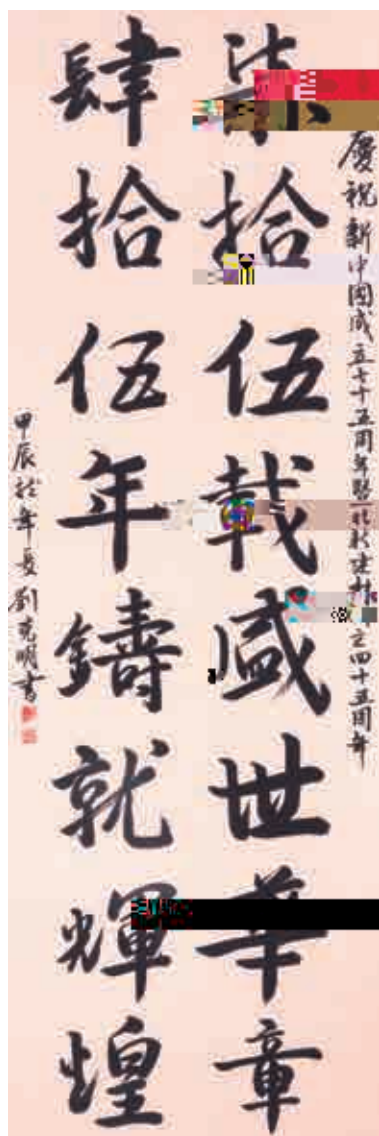 慶祝新中國成立七十五周年暨北新建材立四十五周年
柒拾伍載盛世華章
肆拾伍年鑄就輝煌
甲辰年夏劉克明書